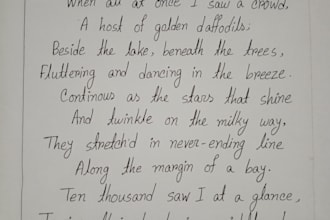 When all at once I saw a crowd,
A host of golden daffodils;
Beside the lake, beneath the trees,
Fluttering and dancing in the breeze.
Continous as the stars that shine
And twinkle on the milky way,
They stretch'd in never-ending line
Along the margin of a bay.
Ten thousand saw I at a glance,